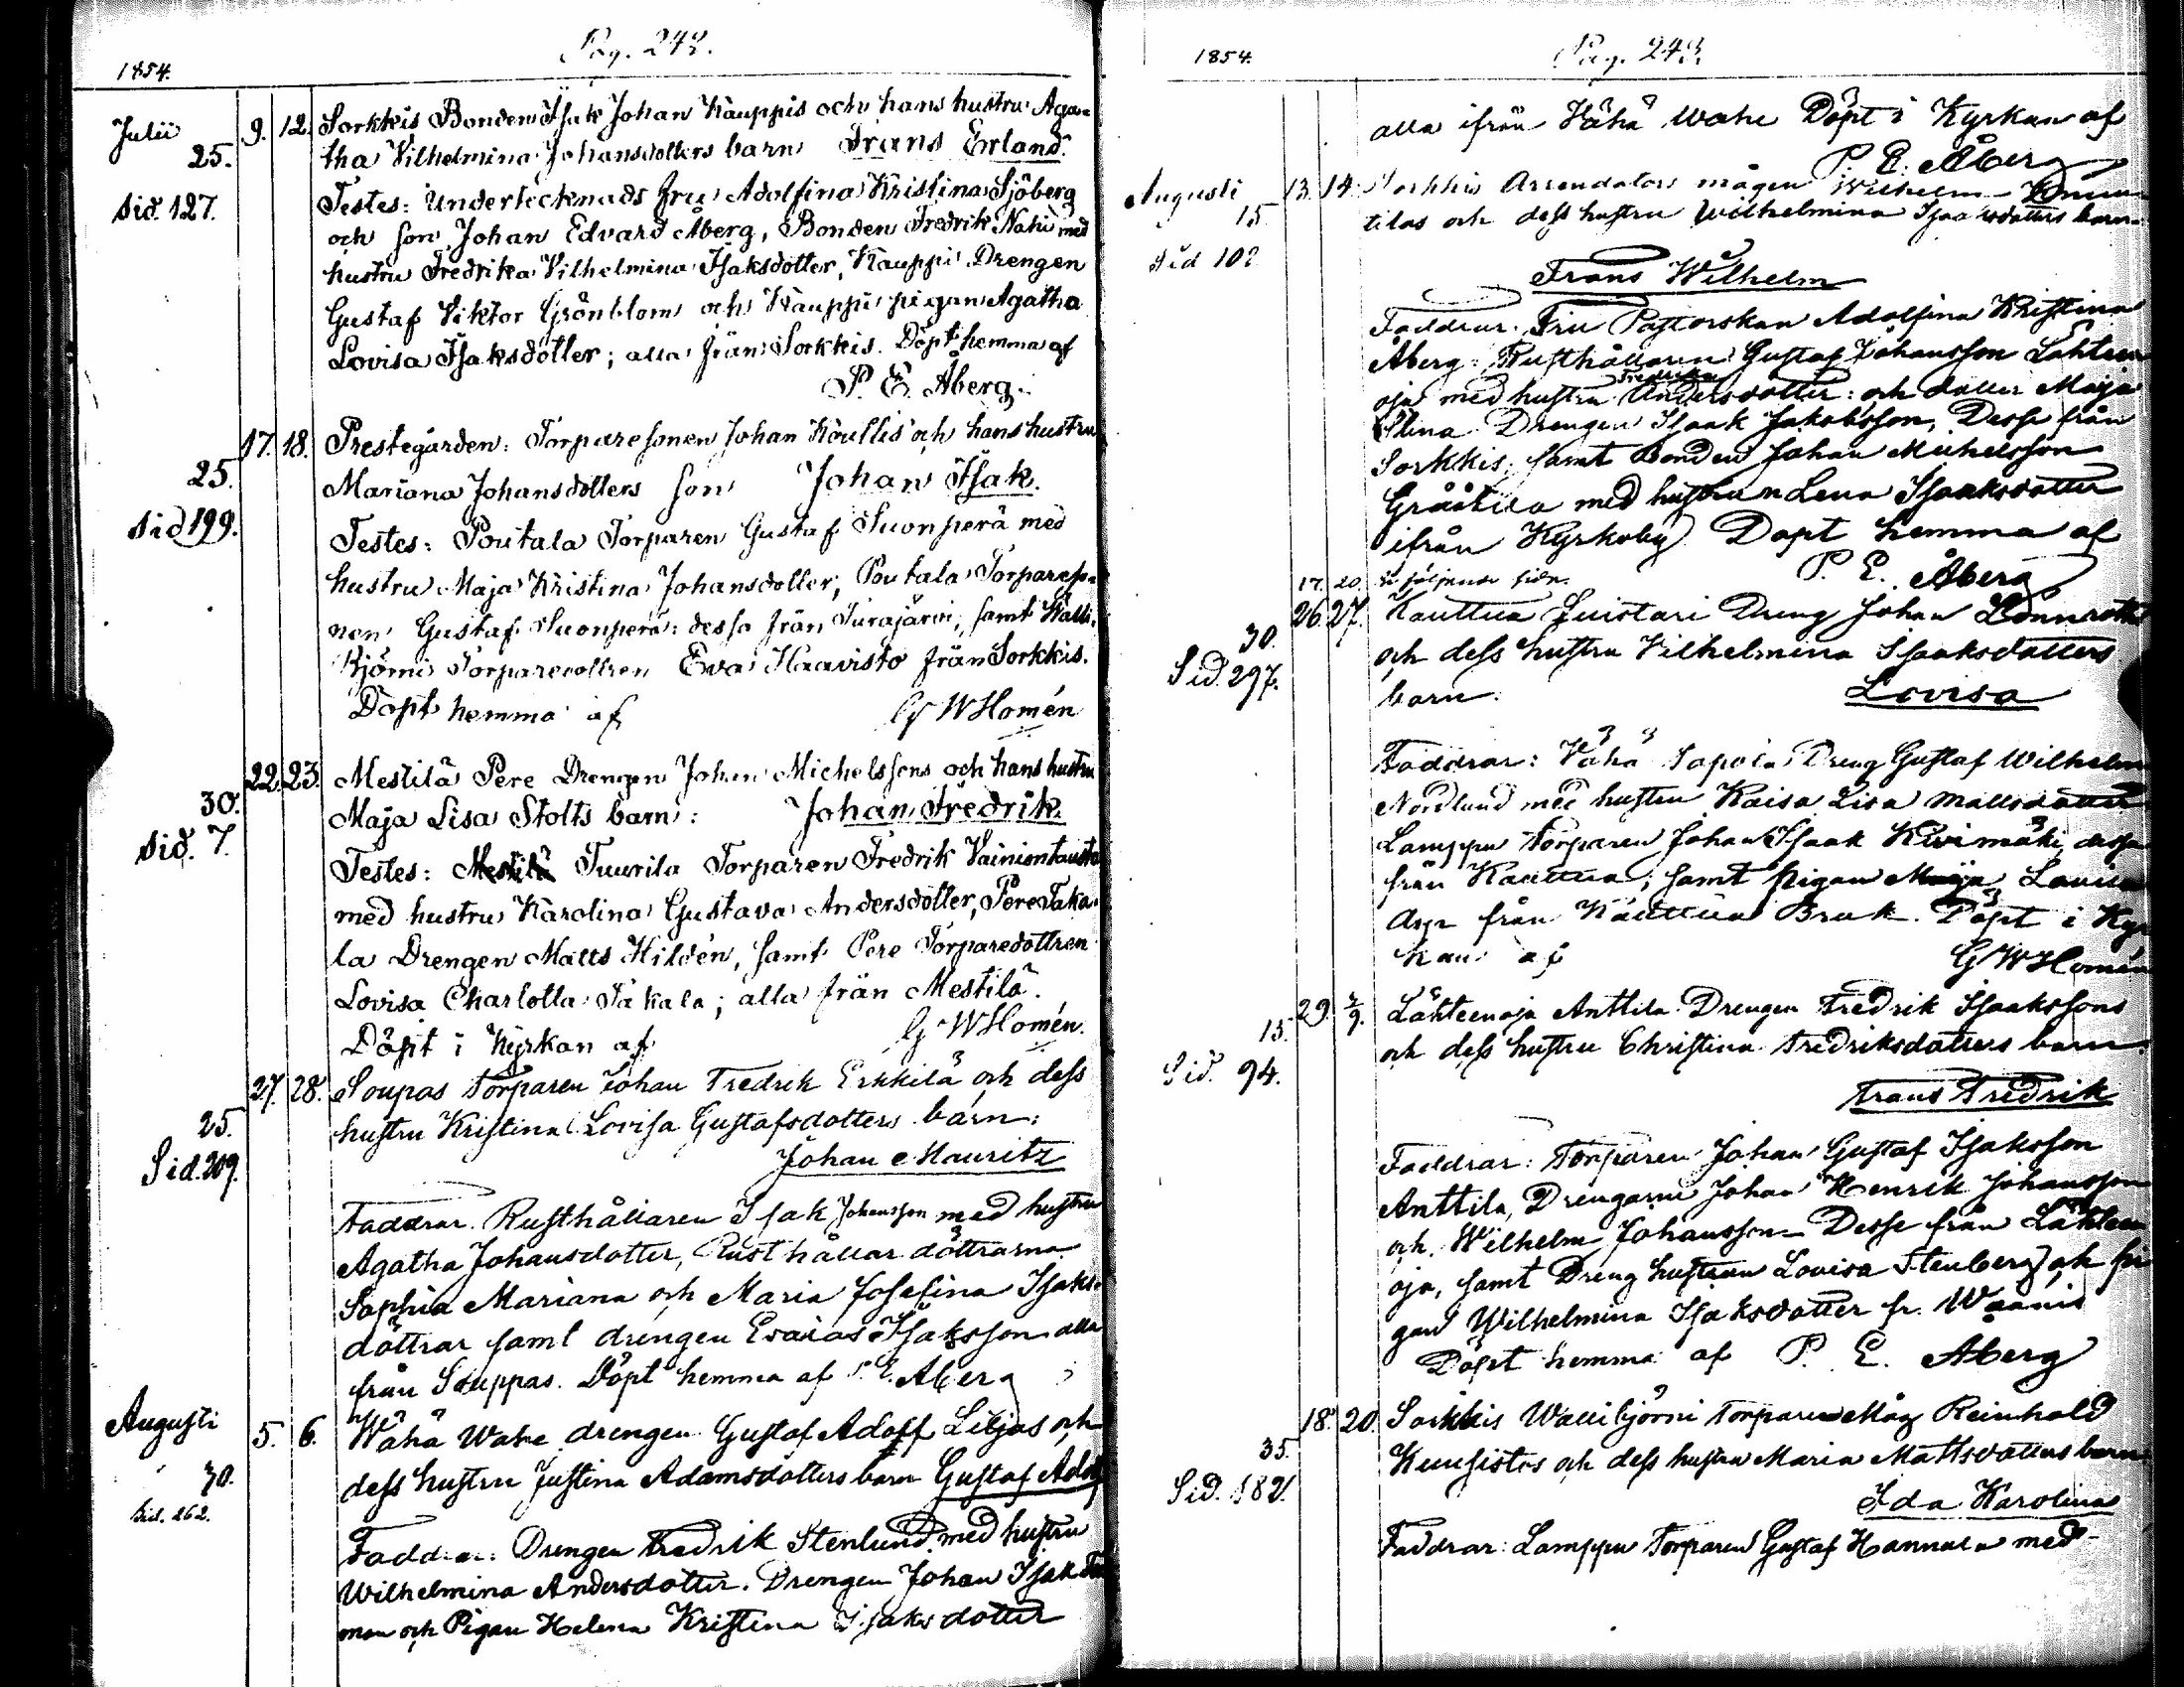 Pag. 242.
1854.
Julii 9. 12. Sorkkis Bonden Isak Johan Kauppis och hans hustru Aga=
25. tha Vilhelmina Johansdotters barn Frans Erland.
Sid. 127. Testes: Undertecknads fru Adolfina Kristina Sjöberg
och son Johan Edvard Åberg, Bonden Fredrik Nahi med
hustru Fredrika Vilhelmina Isaksdotter, Kauppi Drengen
Gustaf Viktor Grönblom och Kauppi pigan Agatha
Lovisa Isaksdotter; alla från Sorkkis. Döpt hemma af
P. E. Åberg.
17. 18. Prestegården: Torparesonen Johan Köullis och hans hustru
25. Mariana Johansdotters son Johan Isak.
Sid 199. Testes: Poutala Torparen Gustaf Suonperä med
hustru Maja Kristina Johansdotter; Poutala Torpareso=
nen Gustaf Suonperä: dessa från Turajärvi; samt Walli=
Björni Torparedottren Eva Haavisto från Sorkkis.
Döpt hemma af G W Homén
22. 23. Mestilä Pere Drengen Johan Michelssons och hans hustru
30. Maja Lisa Stolts barn: Johan Fredrik.
Sid. 7. Testes: Mestilä Tuurila Torparen Fredrik Vainiontausta
med hustru Karolina Gustava Andersdotter, Pere Taka=
la Drengen Matts Hildén, samt Pere Torparedottren
Lovisa Charlotta Takala; alla från Mestilä.
Döpt i Kyrkan af G W Homén.
27. 28. Soupas Torparen Johan Fredrik Erkkilä och dess
25. hustru Kristina Lovisa Gustafsdotters barn:
Sid. 209. Johan Mauritz
Faddrar. Rusthållaren Isak Johansson med hustru
Agatha Johansdotter, Rusthållar döttrarna
Sophia Mariana och Maria Josefina Isaks=
döttrar samt drengen Esaias Isaksson alla
från Souppas. Döpt hemma af P. E. Åberg
Augusti 5. 6. Wähä Wahe drengen Gustaf Adolf Liljas och
30. dess hustru Justina Adamsdotters barn Gustaf Adolf
Sid. 262. Faddrar: Drengen Fredrik Stenlund med hustru
Wilhelmina Andersdotter. Drengen Johan Isak
man och Pigan Helena Kristina Isaksdotter
Pag. 243.
1854.
alla ifrån Vähä Wahe Döpt i Kyrkan af
P. E. Åberg
Augusti 13. 14. Sorkkis Arrendators mågen Wilhelm
15. tilas och dess hustru Wilhelmina Isaaksdotters barn.
Sid 102 Frans Wilhelm
Faddrar. Fru Pastorskan Adolfina Kristina
Åberg: Rusthållaren Gustaf Johansson Lähteen
oja med hustru Fredrika Andersdotter: och dotter Maja
Stina Drengen Isaak Jakobsson, Desse från
Sorkkis, samt Bonden Johan Michelsson
Gråätila med hustrun Lena Isaaksdotter
ifrån Kyrkoby Döpt hemma af
P. E. Åberg
17. 20 Se följande sidn.
26. 27. Kauttua Luistari Dreng Johan Lönnroths
30. och dess hustru Vilhelmina Isaaksdotters
Sid. 297. barn. Lovisa
Faddrar: Vähä Sapola Dreng Gustaf Wilhelm
Nordlund med hustru Kaisa Lisa Mattsdotter
Lamppu Torparen Johan Isaak Kivimäki, dessa
från Kauttua; samt pigan Maja Lovisa
dspr från Kauttua Bruk. Döpt i Kyr
kan af G W Homén
29. 2/9. Lähteenoja Anttila Drengen Fredrik Isaakssons
15. och dess hustru Christina Fredriksdotters barn.
Sid. 94. Frans Fredrik
Faddrar: Torparen Johan Gustaf Isaksson
Anttila, Drengarne Johan Henrik Johansson
och Wilhelm Johansson Desse från Lähteen
oja, samt Dreng hustrun Lovisa Stenberg och pi
gan Wilhelmina Isaksdotter fr. Waanii
Döpt hemma af P. E. Åberg
18. 20. Sorkkis Wallibjörni Torpare Måg Reinhold
35. Kuusistos och dess hustru Maria Mattsdotters barn:
Sid. 182. Ida Karolina
Faddrar: Lamppu Torparen Gustaf Hannula med